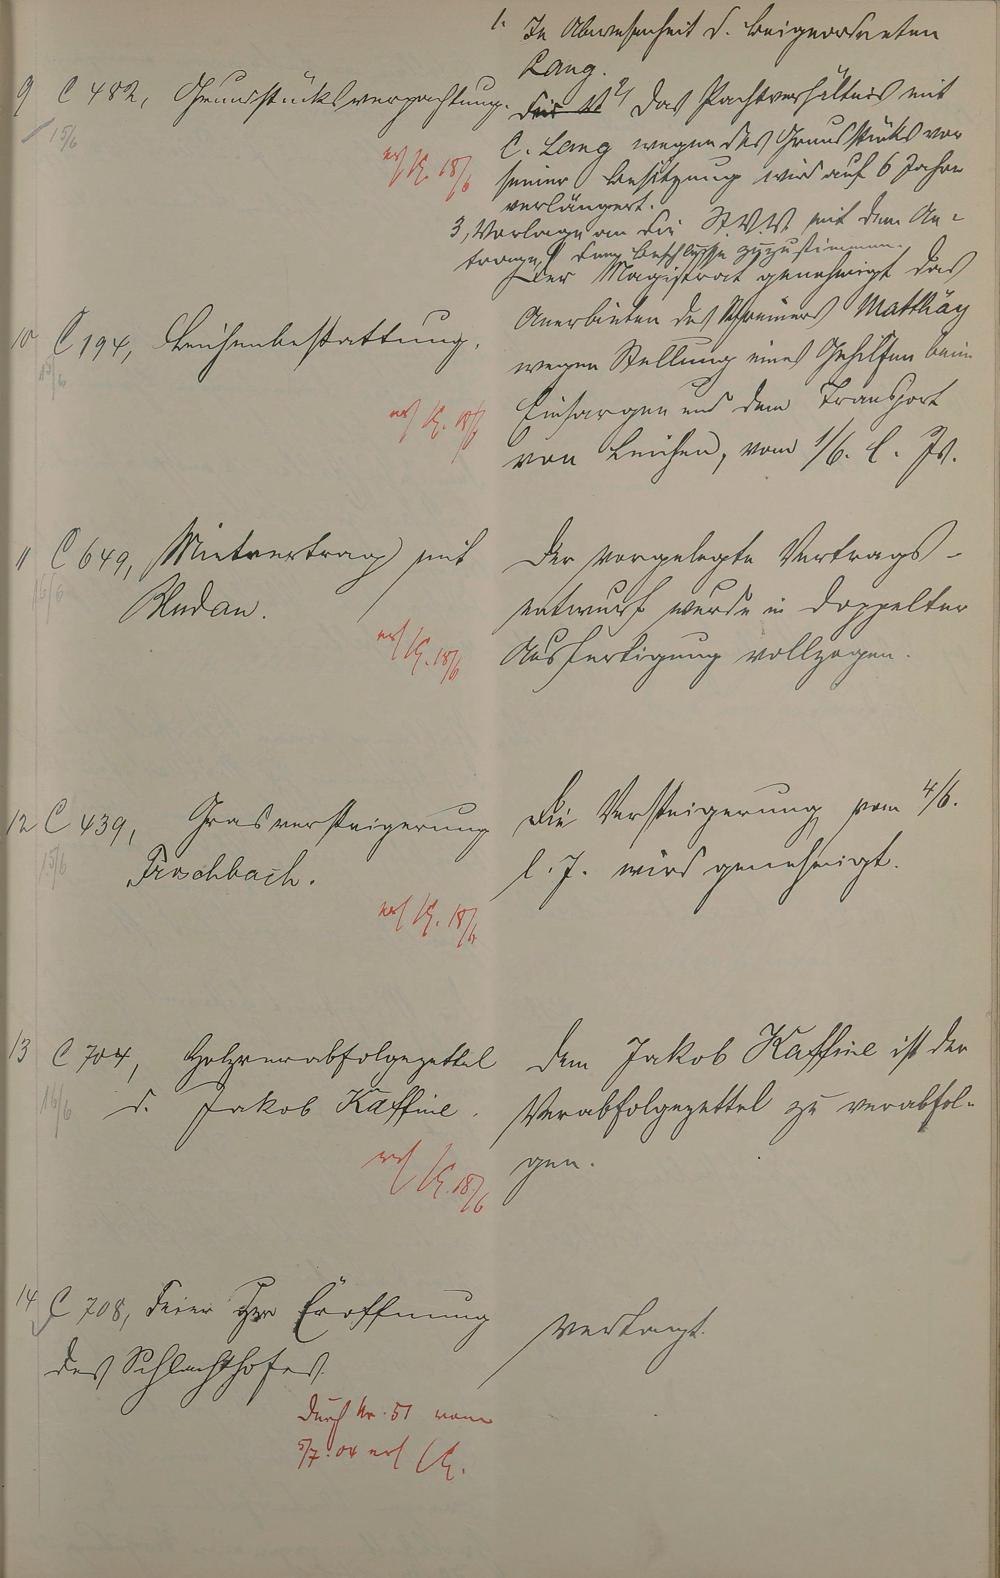 1. In Abwesenheit d. Beigeordneten
Lang.
9 C 482, Grundstücksverpachtung.
15/6
2, Das Pachtverhältnis mit
C. Lang wegen des Grundstücks vor
seiner Besitzung wird auf 6 Jahre
verlängert.
erl 18/6
3, Vorlage an die St.V.V. mit dem An-
trage, dem Beschlusse zuzustimmen.
10 C 194, Leichenbestattung.
15/6
erl 18/6
Der Magistrat genehmigt das
Anerbieten des Schreiners Matthäy
wegen Stellung eines Gehilfen beim
Einsargen und dem Transport
von Leichen, vom 1/6. l. Js.
11 C 649, Mietvertrag mit
Bludau.
16/6
erl 18/6
Der vorgelegte Vertrags-
entwurf wurde in doppelter
Ausfertigung vollzogen.
12 C 439, Grasversteigerung
Froschbach.
15/6
erl 18/6
Die Versteigerung vom 4/6.
l. J. wird genehmigt.
13 C 704, Holzverabfolgezettel
d. Jakob Kaffine.
16/6
erl 18/6
Dem Jakob Kaffine ist der
Verabfolgezettel zu verabfol-
gen.
14 C 708, Feier zur Eröffnung
des Schlachthofes.
Vertagt.
Durch Nr. 51 vom
5/7.04 erl